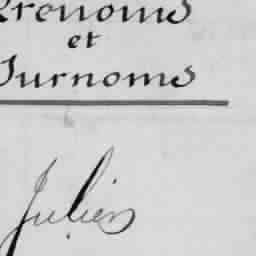 Prenoms
et
Surnoms
Julien